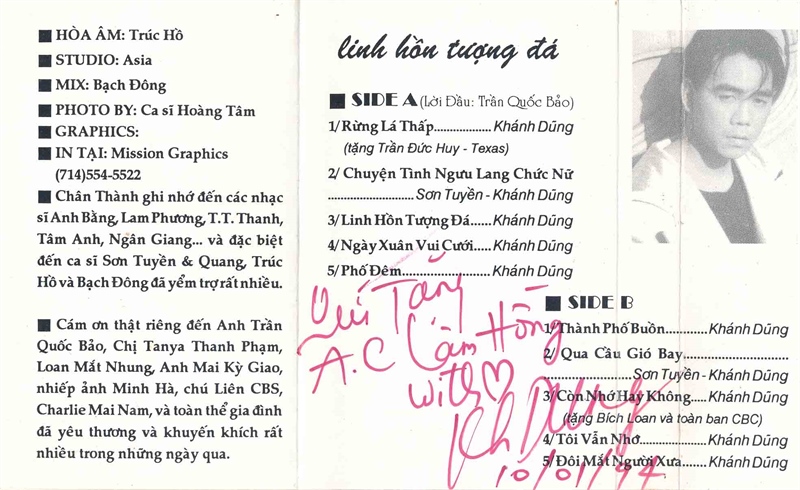 ■ HÒA ÂM: Trúc Hồ
■ STUDIO: Asia
■ MIX: Bạch Đông
■ PHOTO BY: Ca sĩ Hoàng Tâm
■ GRAPHICS:
■ IN TẠI: Mission Graphics
(714)554-5522
■ Chân Thành ghi nhớ đến các nhạc
sĩ Anh Bằng, Lam Phương, T.T. Thanh,
Tâm Anh, Ngân Giang... và đặc biệt
đến ca sĩ Sơn Tuyền & Quang, Trúc
Hồ và Bạch Đông đã yểm trợ rất nhiều.
■ Cám ơn thật riêng đến Anh Trần
Quốc Bảo, Chị Tanya Thanh Phạm,
Loan Mắt Nhung, Anh Mai Kỳ Giao,
nhiếp ảnh Minh Hà, chú Liên CBS,
Charlie Mai Nam, và toàn thể gia đình
đã yêu thương và khuyến khích rất
nhiều trong những ngày qua.
linh hồn tượng đá
■ SIDE A (Lời Đầu: Trần Quốc Bảo)
1/ Rừng Lá Thấp.................. Khánh Dũng
(tặng Trần Đức Huy - Texas)
2/ Chuyện Tình Ngưu Lang Chức Nữ
........................... Sơn Tuyền - Khánh Dũng
3/ Linh Hồn Tượng Đá..... Khánh Dũng
4/ Ngày Xuân Vui Cưới..... Khánh Dũng
5/ Phố Đêm........................... Khánh Dũng
Quí Tặng
A.C Lâm Hồng
with ♡
Kh Dũng
10/01/94
■ SIDE B
1/ Thành Phố Buồn............ Khánh Dũng
2/ Qua Cầu Gió Bay........................
........................... Sơn Tuyền - Khánh Dũng
3/ Còn Nhớ Hay Không.... Khánh Dũng
(tặng Bích Loan và toàn ban CBC)
4/ Tôi Vẫn Nhớ.................. Khánh Dũng
5/ Đôi Mắt Người Xưa....... Khánh Dũng